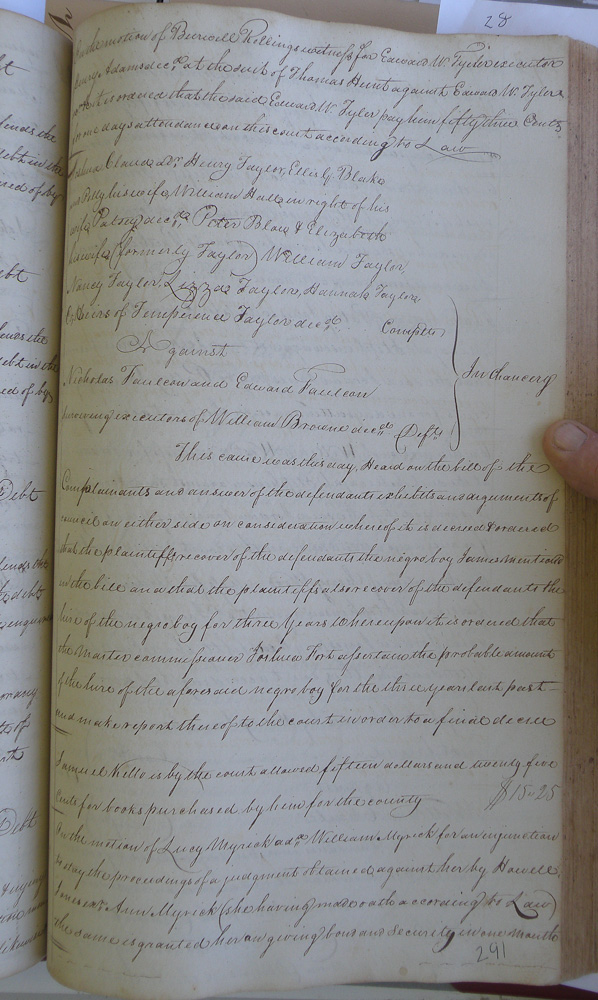 28
On the motion of Burwell Rollings witness for Edward W. Tyler executor
Henry Adams decd. at the suit of Thomas Hunt against Edward W. Tyler
it is ordered that the said Edward W. Tyler pay him fifty three Cents
for one days attendance on this court according to Law
Claud Dr. Henry Taylor, Ellis G. Blake
and Polly his wife, William Hall in right of his
wife Patsey decd. Peter Blow & Elizabeth
his wife (formerly Taylor) William Taylor,
Nancy Taylor, Lizza Taylor, Hannah Taylor
heirs of Temperence Taylor decd. Complts
Against
In Chancery
Nicholas Faulcon and Edward Faulcon
surviving executors of William Browne decd. Defts.
This cause was this day, Heard on the bill of the
Complainants and answer of the defendants exhibits and arguments of
council on either side on consideration whereof it is decreed & ordered
that the plaintiffs recover of the defendants the negro boy James mentioned
in the bill and that the plaintiffs also recover of the defendants the
hire of the negro boy for three Years Whereupon it is ordered that
the Master commissioner Joshua Fort assertain the probable amount
of the hire of the aforesaid negro boy for the three years last past
and make report thereof to the court in order to a final decree
Samuel Kello is by the court allowed fifteen dollars and twenty five
Cents for books purchased by him for the county $15-25
On the motion of Lucy Myrick adx. William Myrick for an injunction
to stay the proceedings of a judgment obtained against her by Howell
Jones exr Ann Myrick (she having made oath according to Law)
the same is granted her on giving bond and Security in one month
291